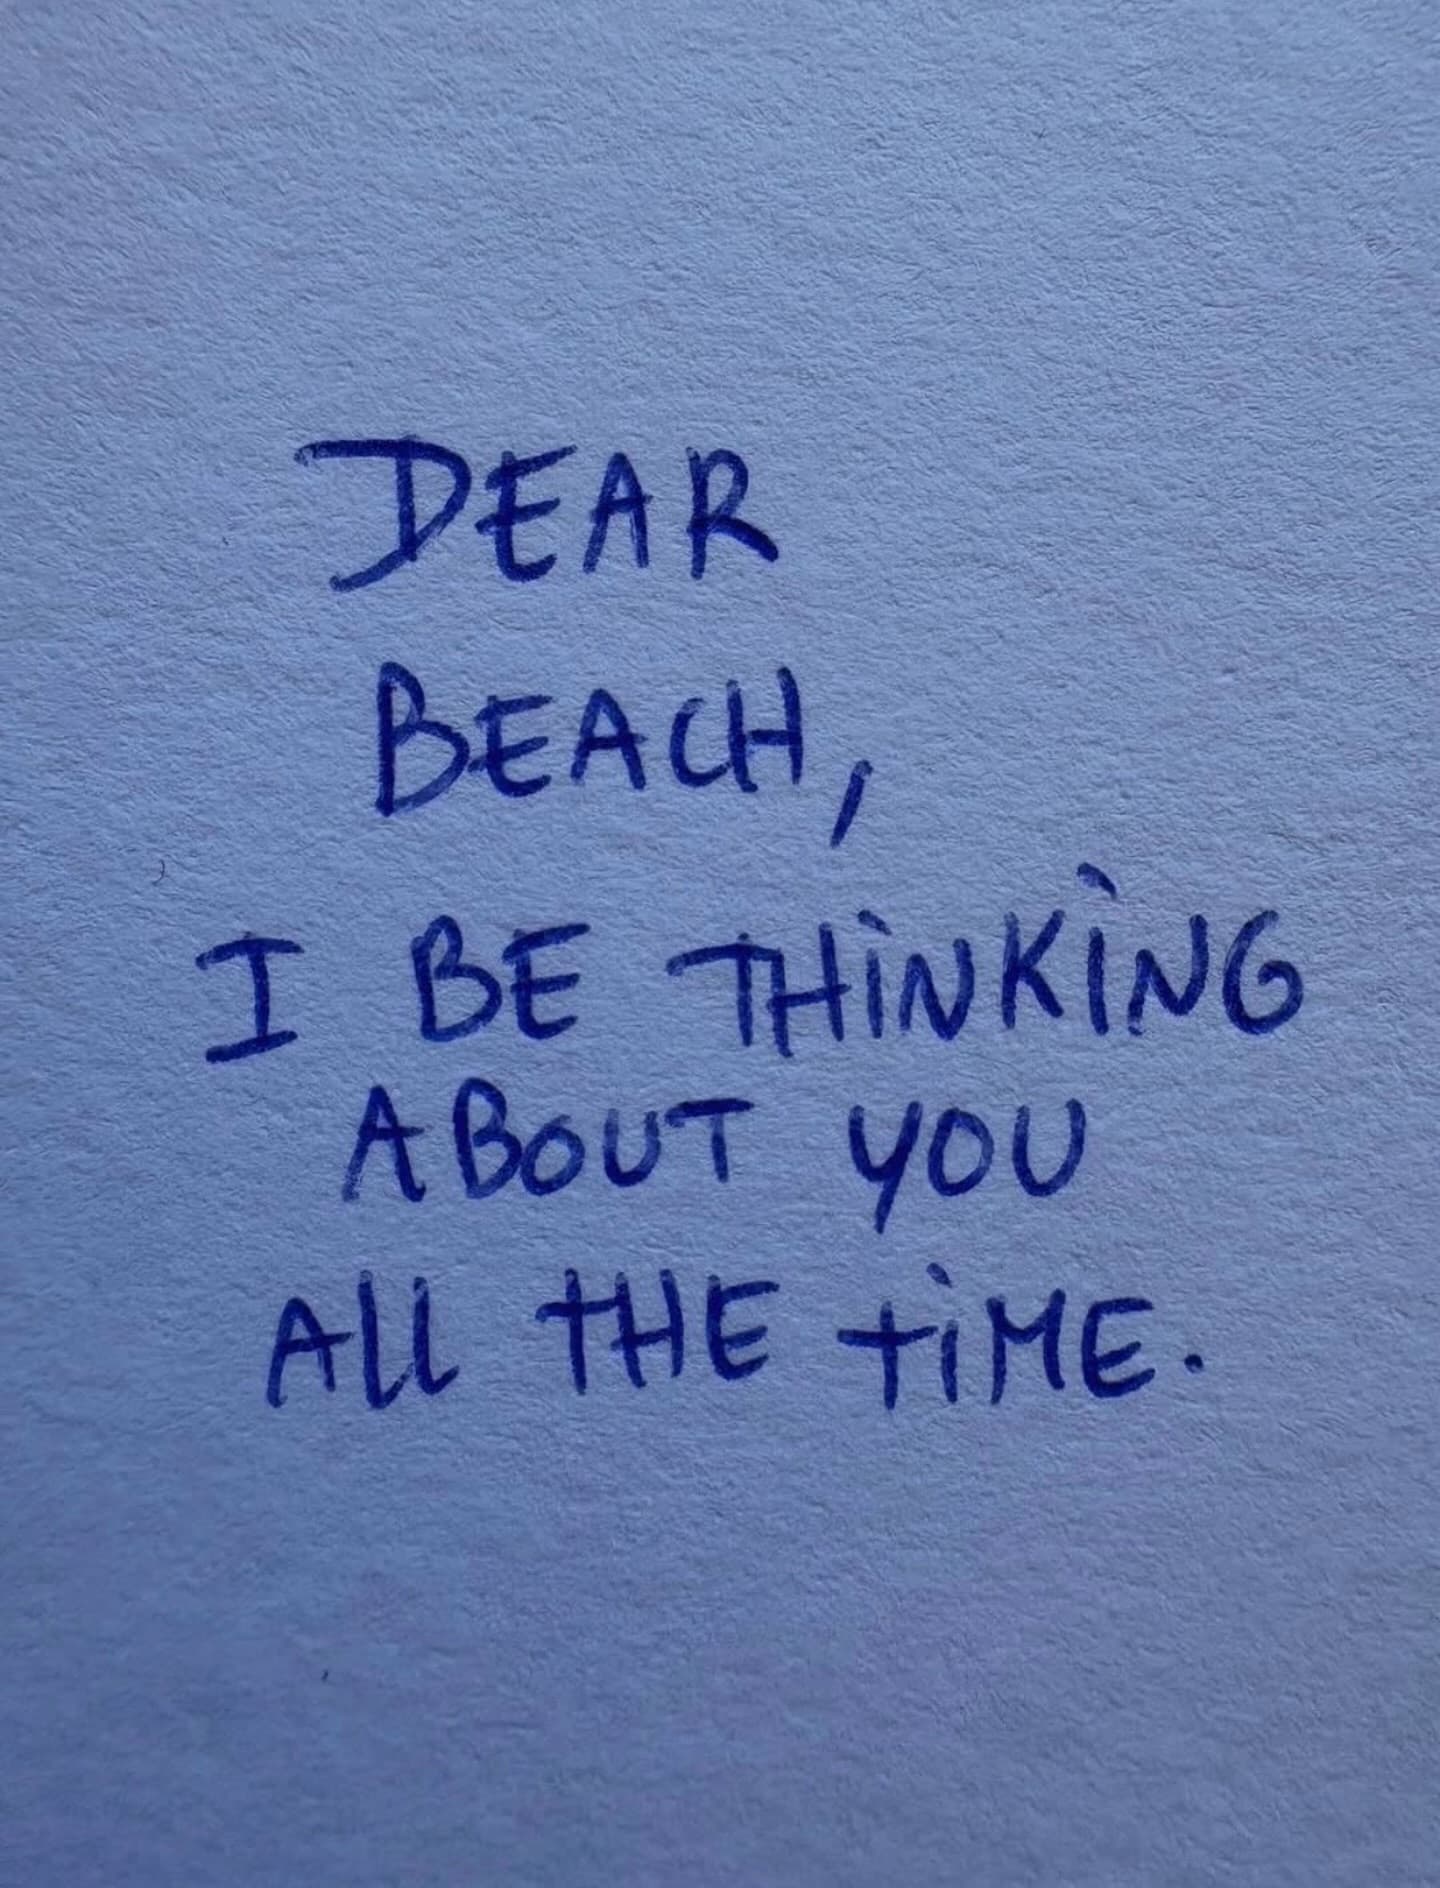 DEAR
BEACH,
I BE THiNKiNG
ABOUT YOU
All tHE tiME.